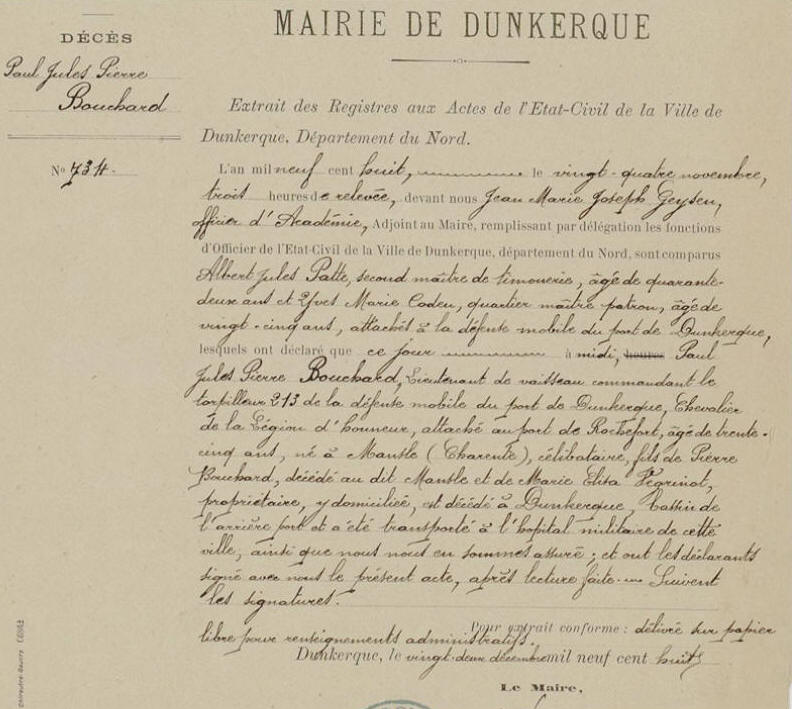 MAIRIE DE DUNKERQUE
DÉCÈS
Paul Jules Pierre
Bouchard
N° 734.
Extrait des Registres aux Actes de l'Etat-Civil de la Ville de
Dunkerque, Département du Nord.
L'an mil neuf cent huit, le vingt-quatre novembre,
trois heures de relevée, devant nous Jean Marie Joseph Geysen,
officier d'Académie, Adjoint au Maire, remplissant par délégation les fonctions
d'Officier de l'Etat-Civil de la Ville de Dunkerque, département du Nord, sont comparus
Albert Jules Patte, second maître de timonerie, âgé de quarante-
deux ans et Yves Marie Coden, quartier maître patron, âgé de
vingt-cinq ans, attachés à la défense mobile du port de Dunkerque,
lesquels ont déclaré que ce jour à midi, heures Paul
Jules Pierre Bouchard, Lieutenant de vaisseau commandant le
torpilleur 213 de la défense mobile du port de Dunkerque, Chevalier
de la Légion d'honneur, attaché au port de Rochefort, âgé de trente-
cinq ans, né à Mansle (Charente), célibataire, fils de Pierre
Bouchard, décédé au dit Mansle et de Marie Elisa
propriétaire, y domiciliée, est décédé à Dunkerque, bassin de
l'arrière port et a été transporté à l'hopital militaire de cette
ville, ainsi que nous nous en sommes assuré ; et ont les déclarants
signé avec nous le présent acte, après lecture faite. Suivent
les signatures.
Pour extrait conforme : délivré sur papier
libre pour renseignements administratifs.
Dunkerque, le vingt-deux décembre mil neuf cent huit
Le Maire,